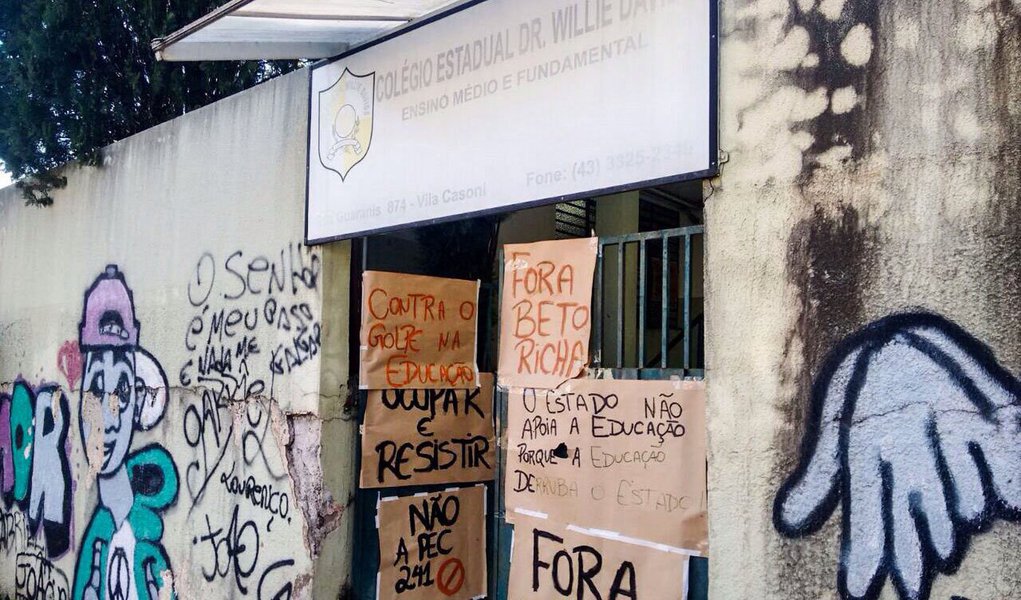 COLÉGIO ESTADUAL DR. WILLIE DAVI
ENSINO MÉDIO E FUNDAMENTAL
Guaranis 874 - Vila Casoni
Fone: (43) 3325-
O SENHOR
É MEU
E NADA ME
LOURENÇO.
JOÃO
JOÃO
CONTRA O
GOLPE NA
EDUCAÇÃO
OCUPAR
E
RESISTIR
NÃO
A PEC
241
FORA
BETO
RICHA
O ESTADO NÃO
APOIA A EDUCAÇÃO
PORQUE A EDUCAÇÃO
DERRUBA O ESTADO!
FORA